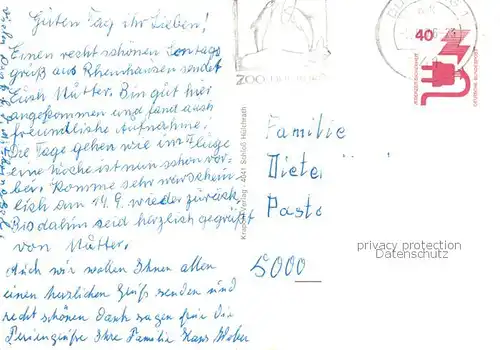 Guten Tag ihr Lieben!
Einen recht schönen Sontags
gruß aus Rheinhausen sendet
Euch Mutter. Bin gut hier
angekommen und fand auch
freundliche Aufnahme.
Die Tage gehen wie im Fluge
eine Woche ist nun schon vor-
bei. Komme sehr warschein-
lich am 14.9. wieder zurück.
Bis dahin seid herzlich gegrüßt
von Mutter.
Auch wir wollen Ihnen allen
einen herzlichen Gruß senden und
recht schönen Dank sagen für die
Feriengrüße Ihre Familie Hans Weber
Krapohl-Verlag 4041 Schloß Hülchrath
ZOO DUISBURG
40
DEUTSCHE BUNDESPOST
Familie
Dieter
Posts
5000
privacy protection
Datenschutz